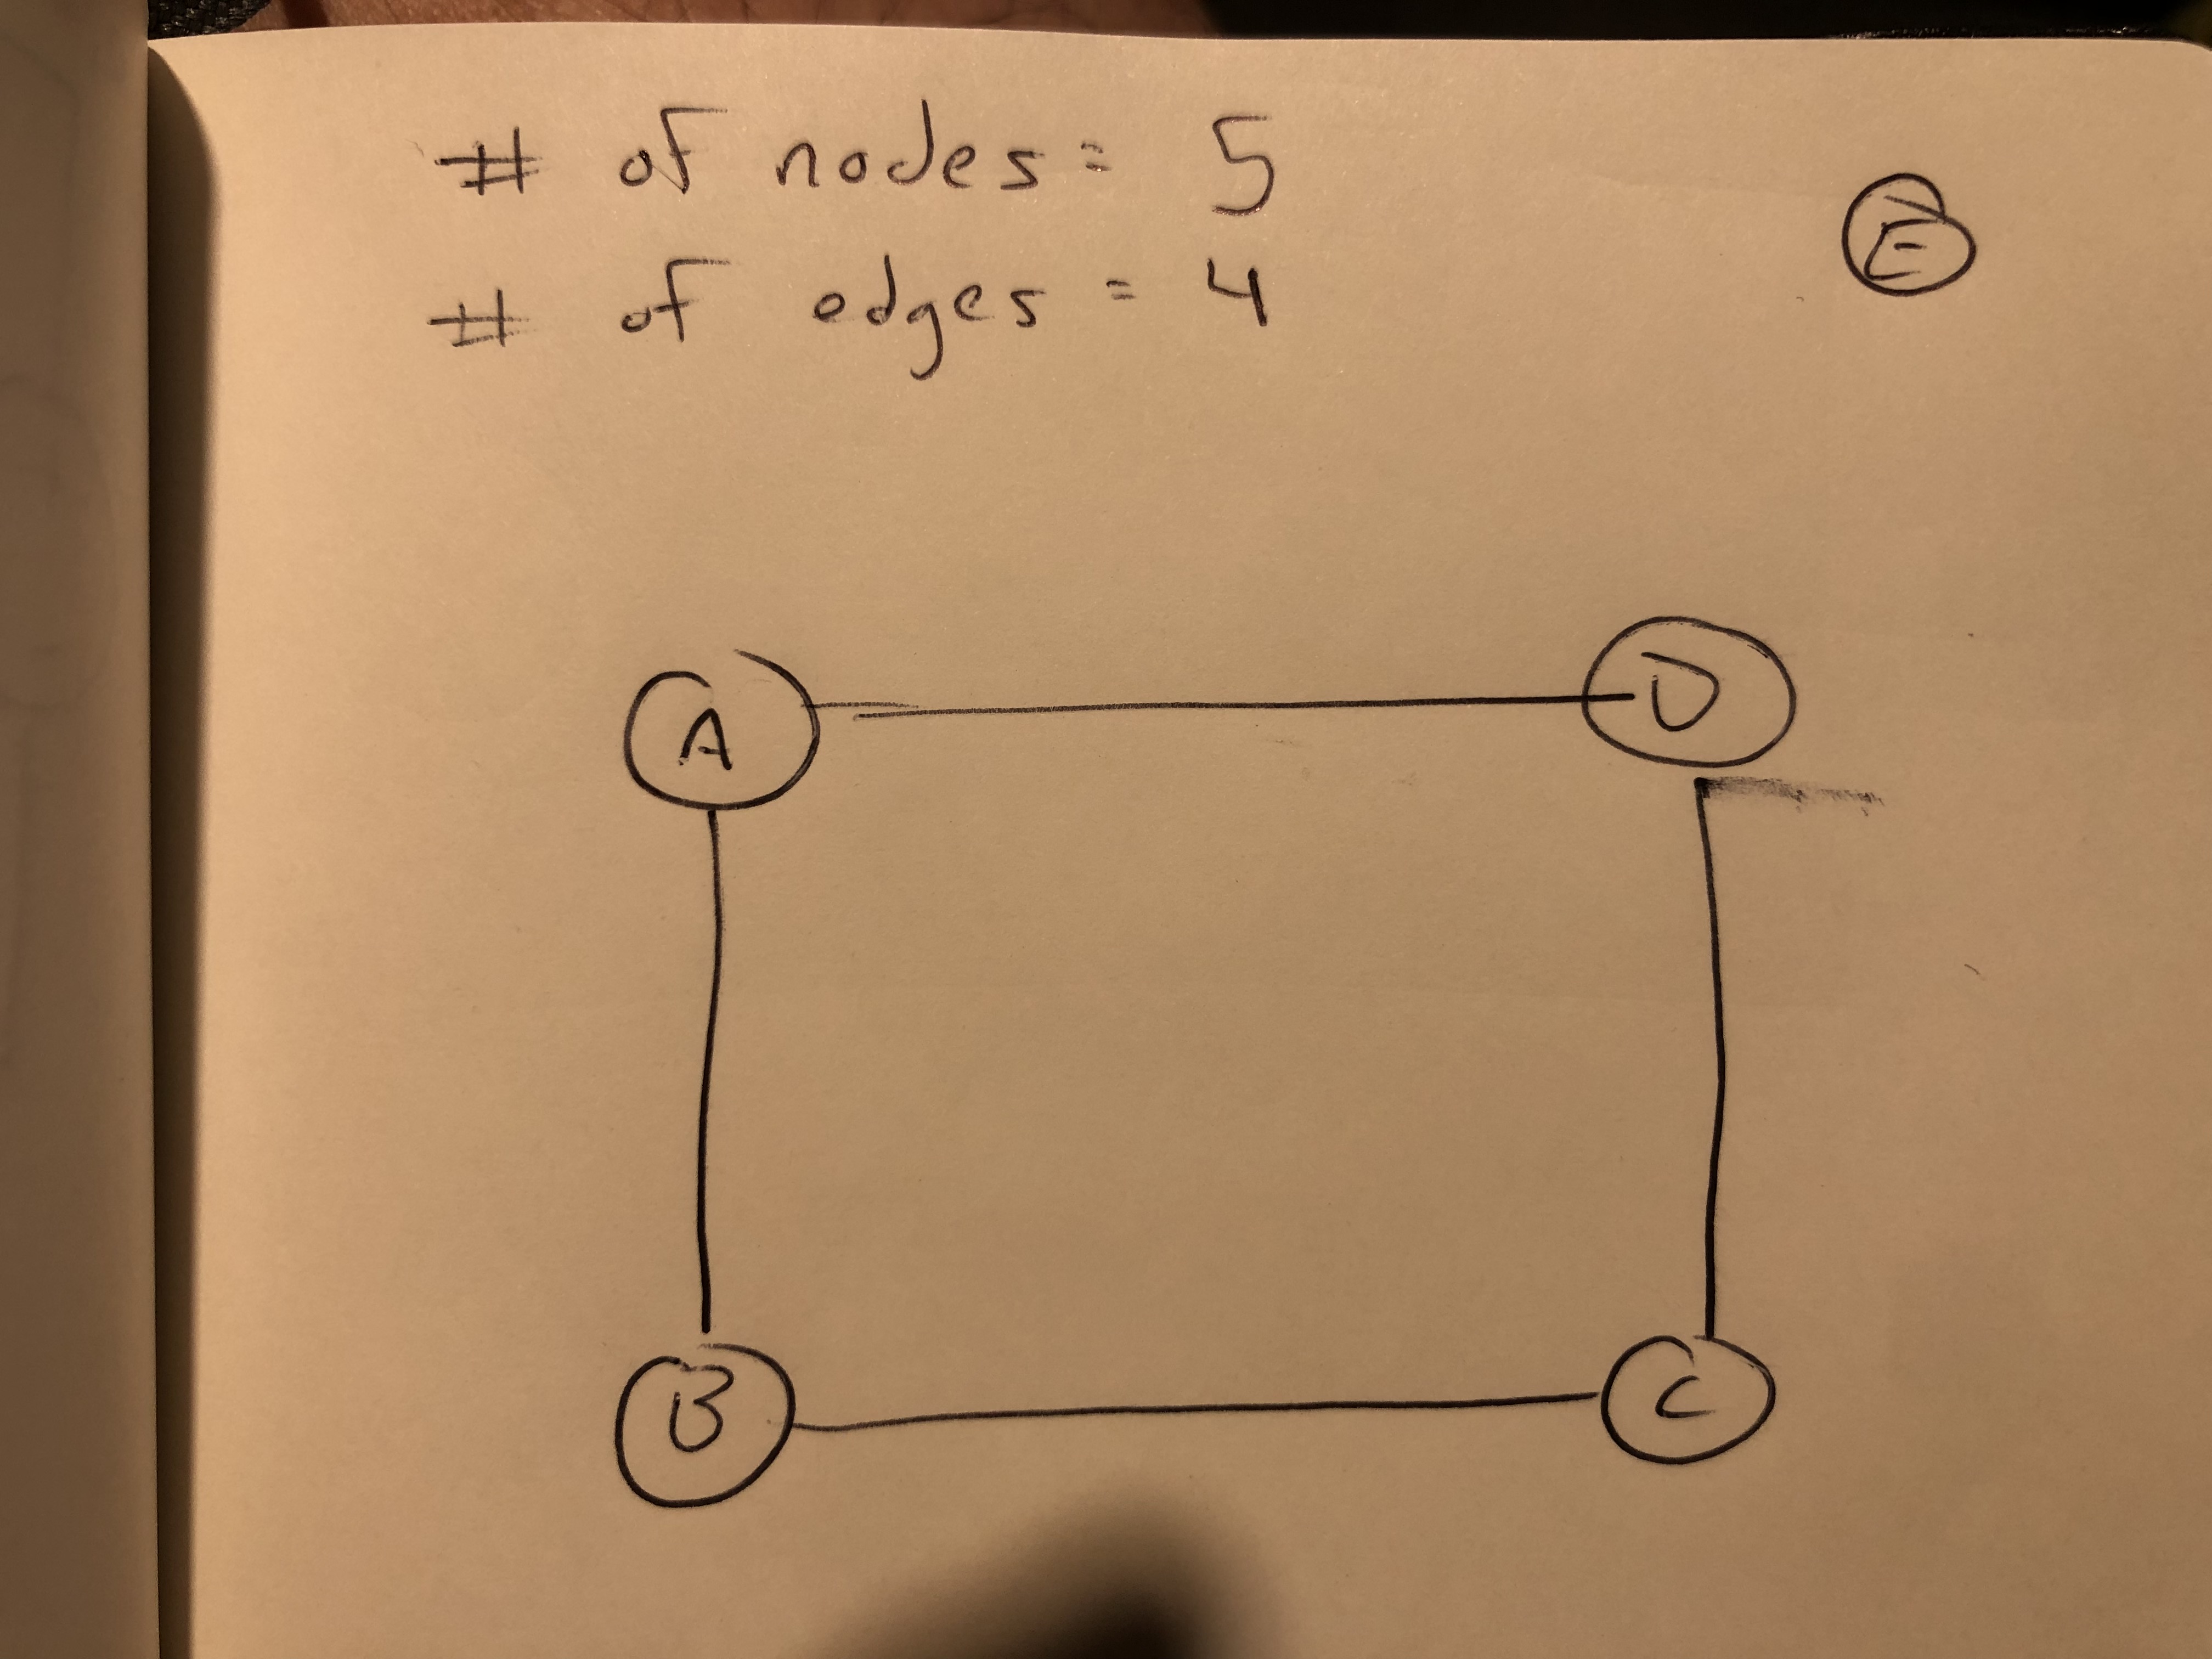 # of nodes = 5
# of edges = 4
E
A
D
B
C